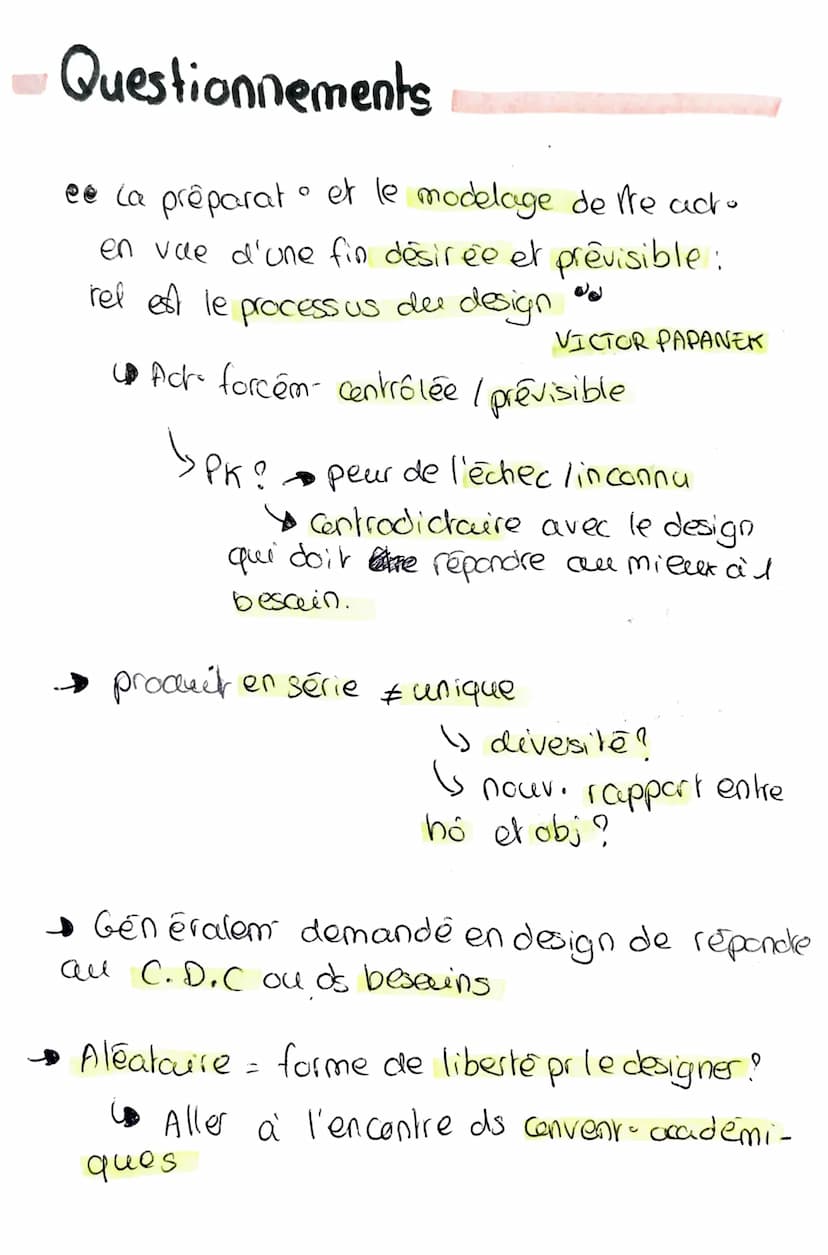 Questionnements
“ La préparat° et le modelage de tte act°
en vue d'une fin désirée et prévisible :
tel est le processus du design ”
VICTOR PAPANEK
↳ Act° forcém- contrôlée / prévisible
↳ PK ? → peur de l'échec / inconnu
↳ contradictoire avec le design
qui doit répondre au mieux à 1
besoin.
→ produit en série ≠ unique
↳ divesité ?
↳ nouv. rapport entre
hô et obj ?
→ Généralem- demandé en design de répondre
au C.D.C ou ds besoins
→ Aléatoire = forme de liberté pr le designer ?
↳ Aller à l'encontre ds convent° académi-
ques